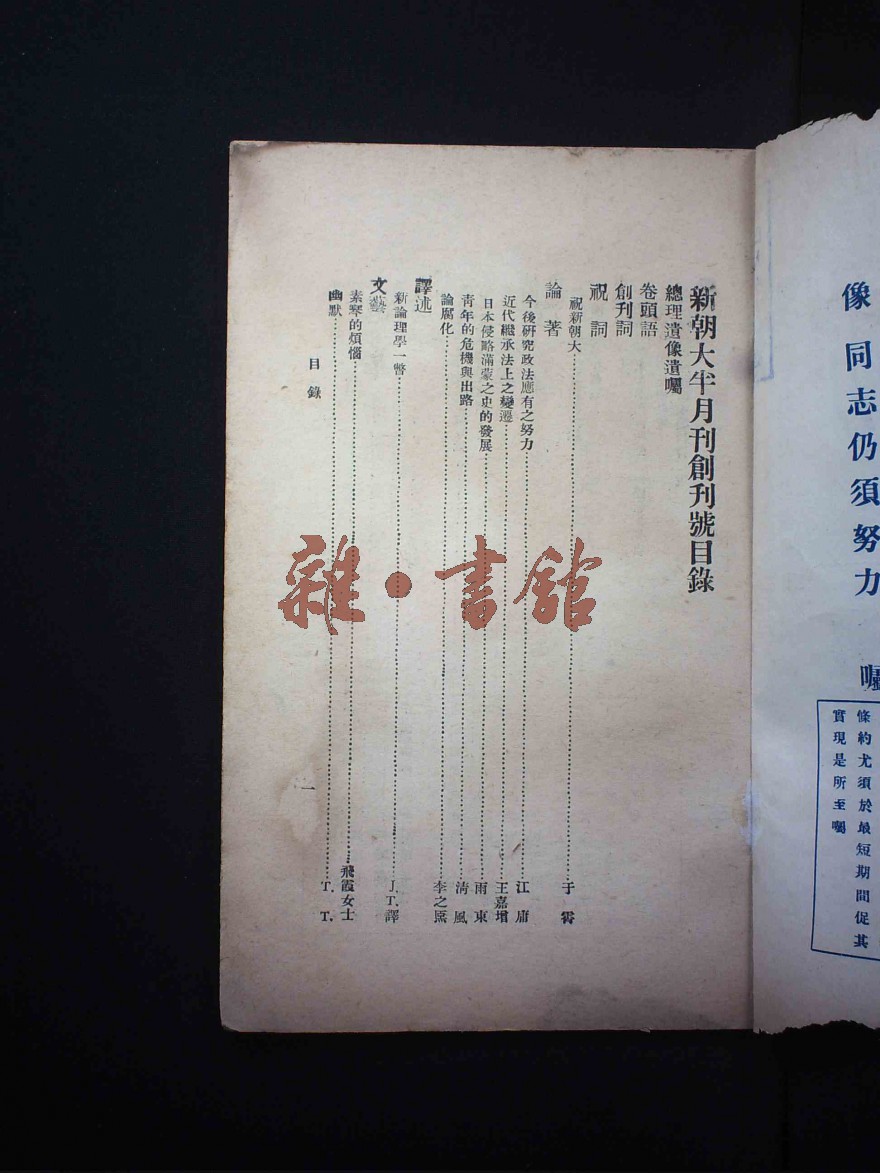 像
同志仍須努力
囑
條約尤須於最短期間促其
實現是所至囑
新朝大半月刊創刊號目錄
總理遺像遺囑
卷頭語
創刊詞
祝詞
祝新朝大……于霄
論著
今後研究政法應有之努力……江庸
近代繼承法上之變遷……王嘉增
日本侵略滿蒙之史的發展……雨東
青年的危機與出路……清風
論腐化……李之煕
譯述
新論理學一瞥……J.T.譯
文藝
素琴的煩惱……飛霞女士
幽默……T.T.
目錄
一
雜·書館